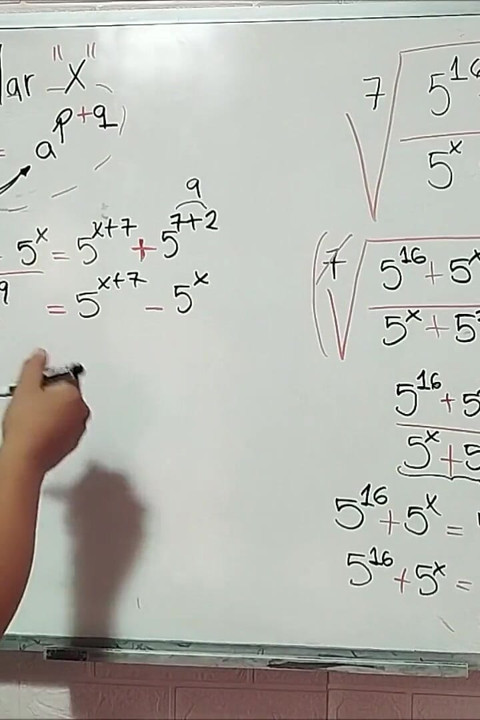 "X"
a^{p+q})
5^x = 5^{x+7} + 5^{7+2}
9
9 = 5^{x+7} - 5^x
7√ 5^{16}
5^x
(7√ 5^{16} + 5^x
5^x + 5
5^{16} + 5
5^x + 5
5^{16} + 5^x =
5^{16} + 5^x =